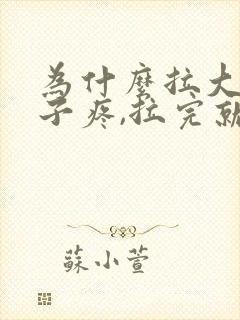 为什麽拉大
子疼,拉完就
蘇小萱